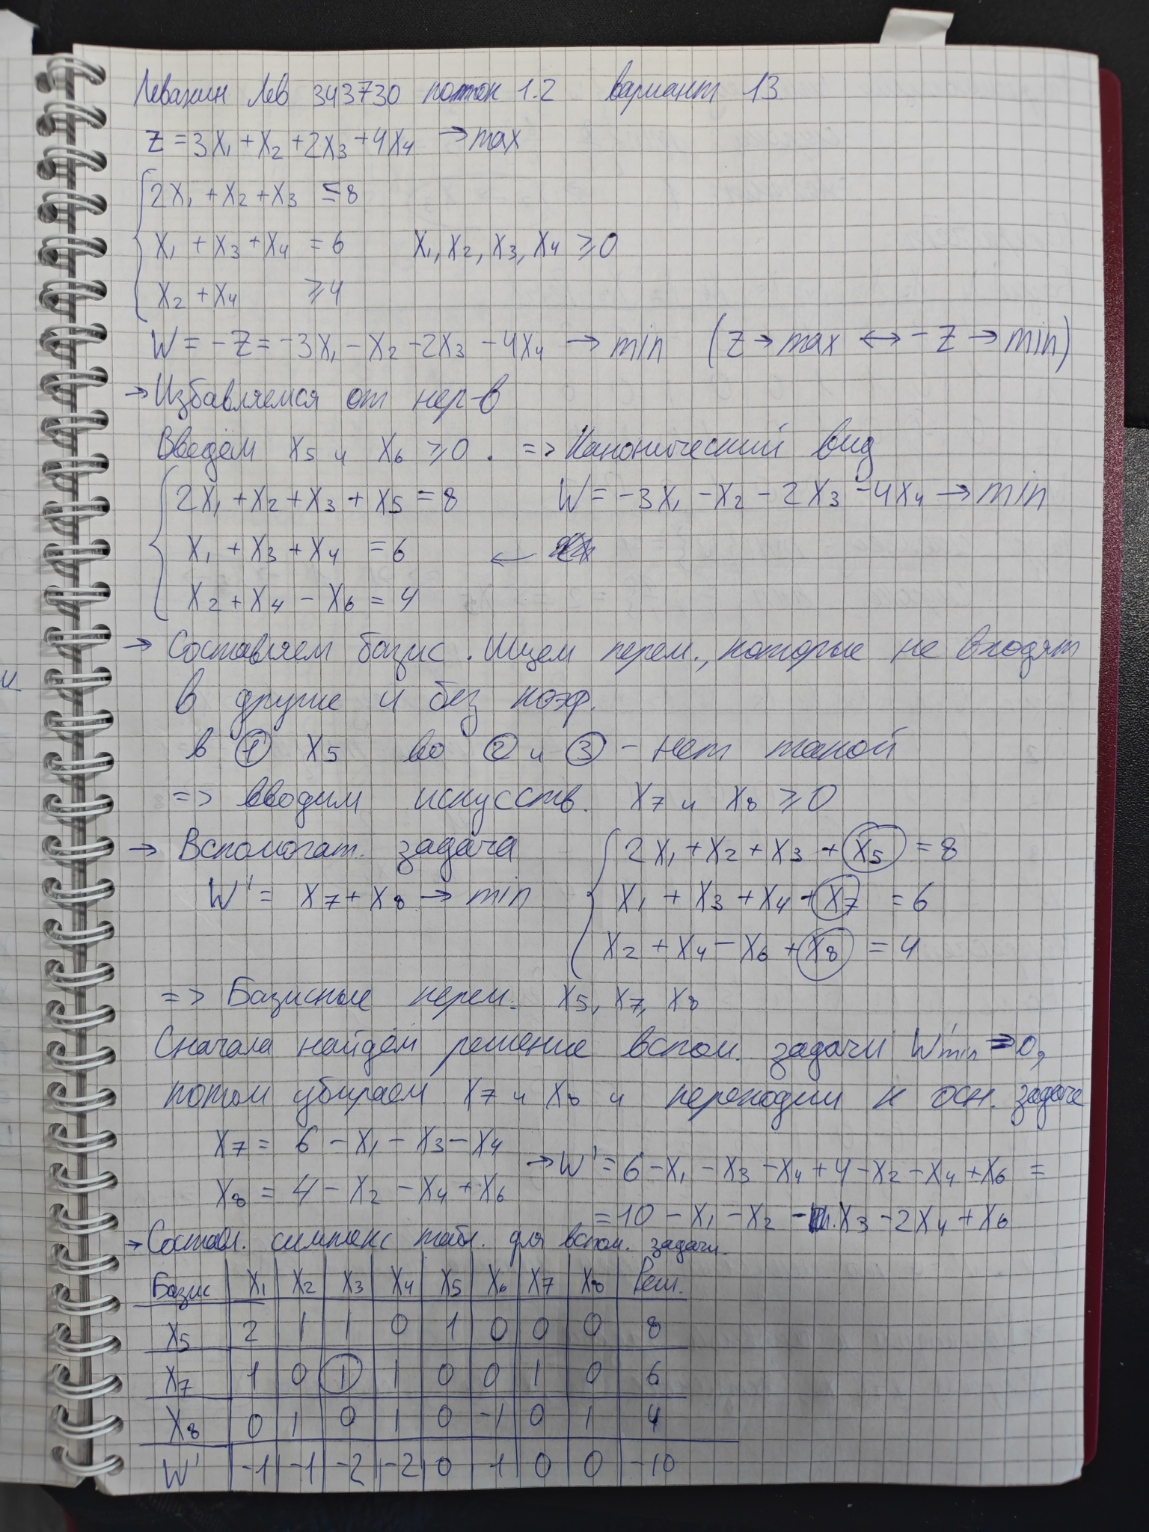 Левахин Лев 343730 поток 1.2 вариант 13
Z = 3X₁ + X₂ + 2X₃ + 4X₄ → max
2X₁ + X₂ + X₃ ≤ 8
X₁ + X₃ + X₄ = 6 X₁, X₂, X₃, X₄ ≥ 0
X₂ + X₄ ≥ 4
W = -Z = -3X₁ - X₂ - 2X₃ - 4X₄ → min (Z → max ↔ -Z → min)
→ Избавляемся от нер-в
Введём X₅ и X₆ ≥ 0. => Канонический вид
2X₁ + X₂ + X₃ + X₅ = 8 W = -3X₁ - X₂ - 2X₃ - 4X₄ → min
X₁ + X₃ + X₄ = 6 ←
X₂ + X₄ - X₆ = 4
→ Составляем базис. Ищем перем., которые не входят
в другие и без коэф.
в ① X₅ во ② и ③ - нет такой
=> вводим искусств. X₇ и X₈ ≥ 0
→ Вспомогат. задача 2X₁ + X₂ + X₃ + X₅ = 8
W' = X₇ + X₈ → min X₁ + X₃ + X₄ + X₇ = 6
X₂ + X₄ - X₆ + X₈ = 4
=> Базисные перем. X₅, X₇, X₈
Сначала найдём решение вспом. задачи W'min = 0,
потом убираем X₇ и X₈ и переходим к осн. задаче
X₇ = 6 - X₁ - X₃ - X₄
→ W' = 6 - X₁ - X₃ - X₄ + 4 - X₂ - X₄ + X₆ =
X₈ = 4 - X₂ - X₄ + X₆
= 10 - X₁ - X₂ - X₃ - 2X₄ + X₆
→ Состав. симплекс табл. для вспом. задачи.
Базис X₁ X₂ X₃ X₄ X₅ X₆ X₇ X₈ Реш.
X₅ 2 1 1 0 1 0 0 0 8
X₇ 1 0 1 1 0 0 1 0 6
X₈ 0 1 0 1 0 -1 0 1 4
W' -1 -1 -2 -2 0 -1 0 0 -10